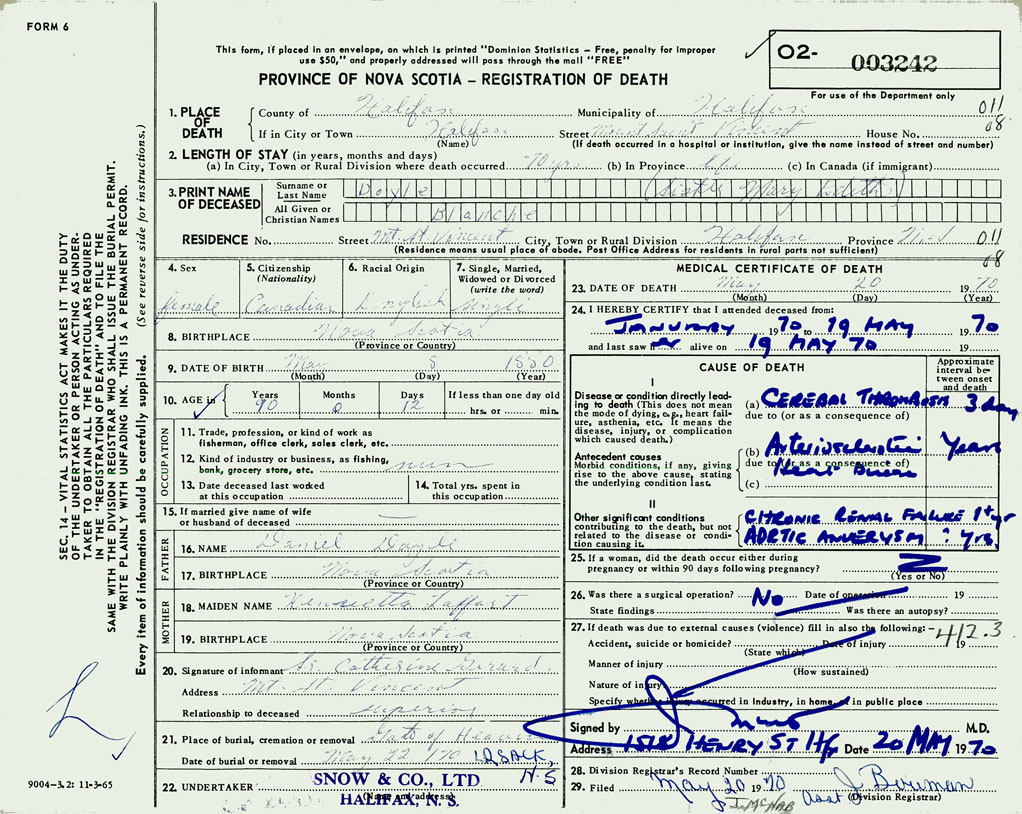 FORM 6
This form, if placed in an envelope, on which is printed "Dominion Statistics – Free, penalty for improper
use $50," and properly addressed will pass through the mail "FREE"
PROVINCE OF NOVA SCOTIA – REGISTRATION OF DEATH
O2- 003242
For use of the Department only
011
08
1. PLACE OF DEATH
County of Halifax Municipality of Halifax
If in City or Town Halifax Street Mount Saint Vincent House No.
(Name) (If death occurred in a hospital or institution, give the name instead of street and number)
2. LENGTH OF STAY (in years, months and days)
(a) In City, Town or Rural Division where death occurred 70 yrs. (b) In Province Life (c) In Canada (if immigrant)
3. PRINT NAME OF DECEASED
Surname or Last Name Doyle (Sister Mary Edith)
All Given or Christian Names Blanche
RESIDENCE No. Street Mt. St. Vincent City, Town or Rural Division Halifax Province N.S. 011
(Residence means usual place of abode. Post Office Address for residents in rural parts not sufficient) 08
4. Sex female
5. Citizenship (Nationality) Canadian
6. Racial Origin English
7. Single, Married, Widowed or Divorced (write the word) single
8. BIRTHPLACE Nova Scotia
(Province or Country)
9. DATE OF BIRTH May 8 1880
(Month) (Day) (Year)
10. AGE in Years 90 Months 0 Days 12 If less than one day old hrs. or min.
OCCUPATION
11. Trade, profession, or kind of work as fisherman, office clerk, sales clerk, etc.
12. Kind of industry or business, as fishing, bank, grocery store, etc. nun
13. Date deceased last worked at this occupation
14. Total yrs. spent in this occupation
15. If married give name of wife or husband of deceased —
FATHER
16. NAME Daniel Doyle
17. BIRTHPLACE Nova Scotia
(Province or Country)
MOTHER
18. MAIDEN NAME Henrietta
19. BIRTHPLACE Nova Scotia
(Province or Country)
20. Signature of informant Sr. Catherine
Address Mt. St. Vincent
Relationship to deceased superior
21. Place of burial, cremation or removal Gate of Heaven
Date of burial or removal May 22 170 LR SACK, N.S
22. UNDERTAKER SNOW & CO., LTD
(Name and address)
HALIFAX, N. S.
MEDICAL CERTIFICATE OF DEATH
23. DATE OF DEATH May 20 1970
(Month) (Day) (Year)
24. I HEREBY CERTIFY that I attended deceased from:
JANUARY 1970 to 19 MAY 1970
and last saw her alive on 19 MAY 70 19
CAUSE OF DEATH
Approximate interval between onset and death
I
Disease or condition directly leading to death (This does not mean the mode of dying, e.g., heart failure, asthenia, etc. It means the disease, injury, or complication which caused death.)
(a) CEREBAL THROMBOSIS 3 day
due to (or as a consequence of)
Antecedent causes
Morbid conditions, if any, giving rise to the above cause, stating the underlying condition last.
(b) Arteriosclerotic years
due to (or as a consequence of)
Heart Disease
(c)
II
Other significant conditions contributing to the death, but not related to the disease or condition causing it.
CHRONIC RENAL FAILURE 1+yr
AORTIC ANUERYSM ? yrs,
25. If a woman, did the death occur either during
pregnancy or within 90 days following pregnancy?
(Yes or No)
26. Was there a surgical operation? No Date of operation 19
State findings Was there an autopsy?
27. If death was due to external causes (violence) fill in also the following: 412.3
Accident, suicide or homicide? Date of injury 19
(State which)
Manner of injury
(How sustained)
Nature of injury
Specify whether injury occurred in Industry, in home, or in public place
Signed by M.D.
Address 1518 HENRY ST Hfx Date 20 MAY 1970
28. Division Registrar's Record Number
29. Filed May 20 1970 J. Bowman
asst (Division Registrar)
SEC. 14 – VITAL STATISTICS ACT MAKES IT THE DUTY
OF THE UNDERTAKER OR PERSON ACTING AS UNDER-
TAKER TO OBTAIN ALL THE PARTICULARS REQUIRED
IN THE "REGISTRATION OF DEATH" AND TO FILE THE
SAME WITH THE DIVISION REGISTRAR WHO SHALL ISSUE THE BURIAL PERMIT.
WRITE PLAINLY WITH UNFADING INK. THIS IS A PERMANENT RECORD.
Every item of information should be carefully supplied. (See reverse side for instructions.)
9004-3.2: 11-3-65